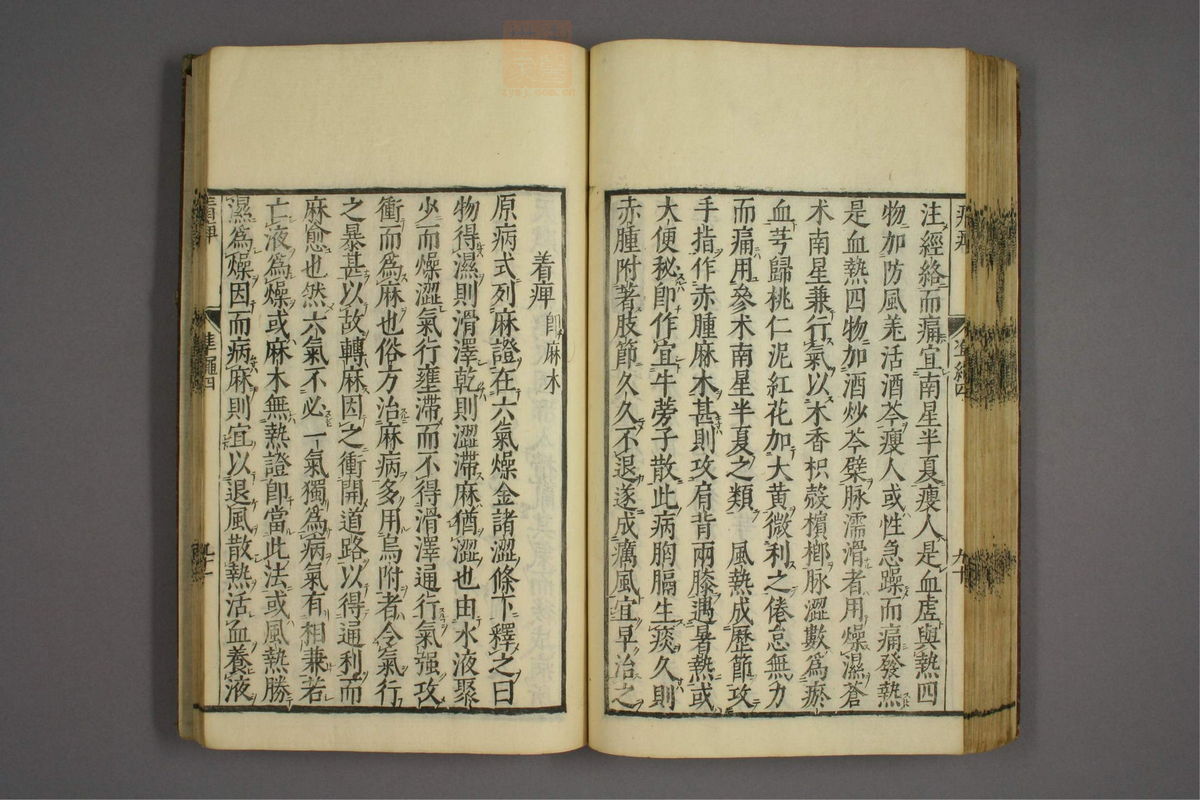 注經絡而痛宜南星半夏瘦人是血虛與熱四
物加防風羗活酒芩瘦人或性急躁而痛發熱
是血熱四物加酒炒芩檗脉濡滑者用燥濕蒼
术南星兼行氣以木香枳殼檳榔脉澀數爲瘀
血芎歸桃仁泥紅花加大黄微利之倦怠無力
而痛用參术南星半夏之類 風熱成歷節攻
手指作赤腫麻木甚則攻肩背兩膝遇暑熱或
大便秘卽作宜牛蒡子散此病胸膈生痰久則
赤腫附著肢節久久不退遂成癘風宜早治之
着痺 卽麻木
原病式列麻證在六氣燥金諸澀條下釋之曰
物得濕則滑澤乾則澀滯麻猶澀也由水液聚
少而燥澀氣行壅滯而不得滑澤通行氣强攻
衝而爲麻也俗方治麻病多用烏附者令氣行
之暴甚以故轉麻因之衝開道路以得通利而
麻愈也然六氣不必一氣獨爲病氣有相兼若
亡液爲燥或麻木無熱證卽當此法或風熱勝
濕爲燥因而病麻則宜以退風散熱活血養液
着痺
準繩四
九十一
九十